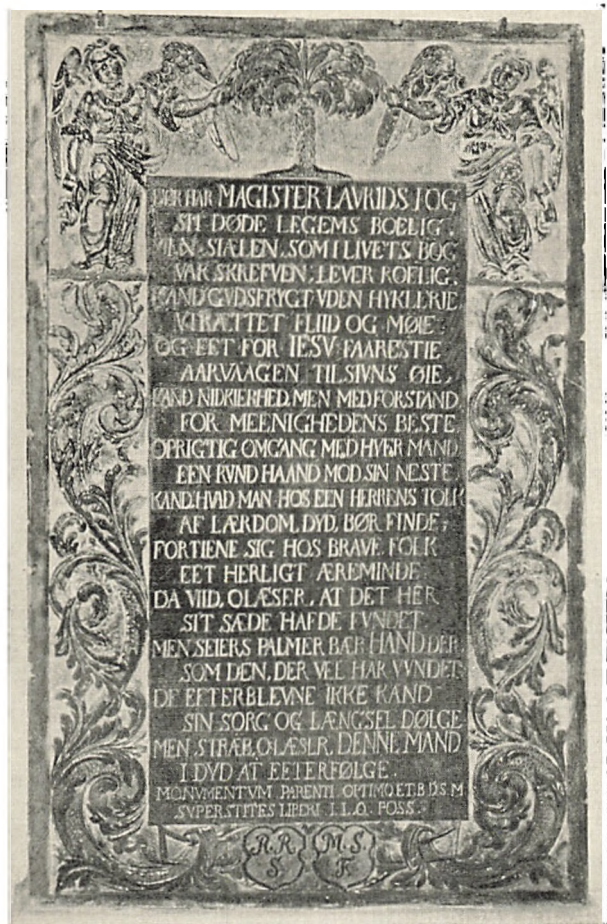 HER HAR MAGISTER LAVRIDS FOG
SIT DØDE LEGEMS BOELIG.
MEN SIÆLEN, SOM I LIVETS BOG
VAR SKREFVEN, LEVER ROELIG.
KAND GVDSFRYGT VDEN HYKLERIE
VTRÆTTET FLIID OG MØIE
OG EET FOR IESV FAARESTIE
AARVAAGEN TILSIVNS ØIE,
KAND NIDKIERHED, MEN MED FORSTAND
FOR MEENIGHEDENS BESTE
OPRIGTIG OMGANG MED HVER MAND
EEN RVND HAAND MOD SIN NESTE
KAND, HVAD MAN HOS EEN HERRENS TOLK
AF LÆRDOM, DYD, BØR FINDE,
FORTIENE SIG HOS BRAVE FOLK
EET HERLIGT ÆREMINDE
DA VIID, O LÆSER, AT DET HER
SIT SÆDE HAFDE FVNDET
MEN SEIERS PALMER BÆR HAND DER
SOM DEN, DER VEL HAR VVNDET
DE EFTERBLEVNE IKKE KAND
SIN SORG OG LÆNGSEL DØLGE
MEN STRÆB, O LÆSER, DENNE MAND
I DYD AT EFTERFØLGE.
MONUMENTVM PARENTI OPTIMO ET B.D.S.M
SVPERSTITES LIBERI I.L.Q. FOSS.
R.R. M.S.
S F